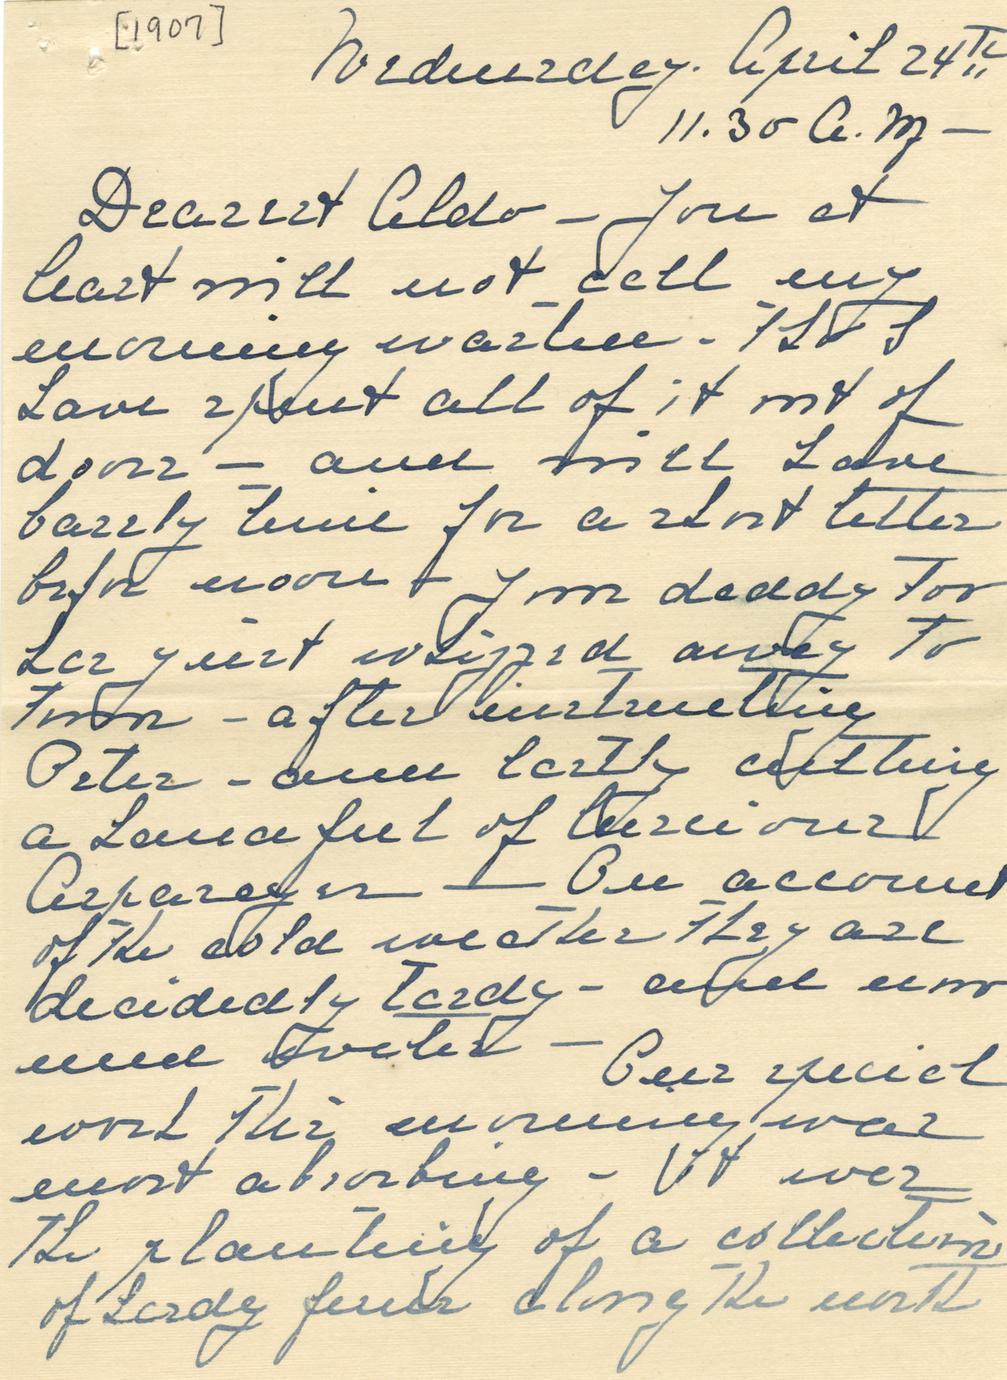 [1907]
Wednesday. April 24th
11.30 A.M —
Dearest Aldo — You at
least will not call my
morning wasted. Tho I
have spent all of it out of
doors — and will have
barely time for a short letter
before noon — Your daddy too
has just whipped away to
town — after instructing
Peter — and lastly cutting
a handful of luscious
Asparagus — On account
of the cold weather they are
decidedly tardy — and now
and
Our special
work this morning was
most absorbing — It was
the planting of a collection
of hardy ferns along the north